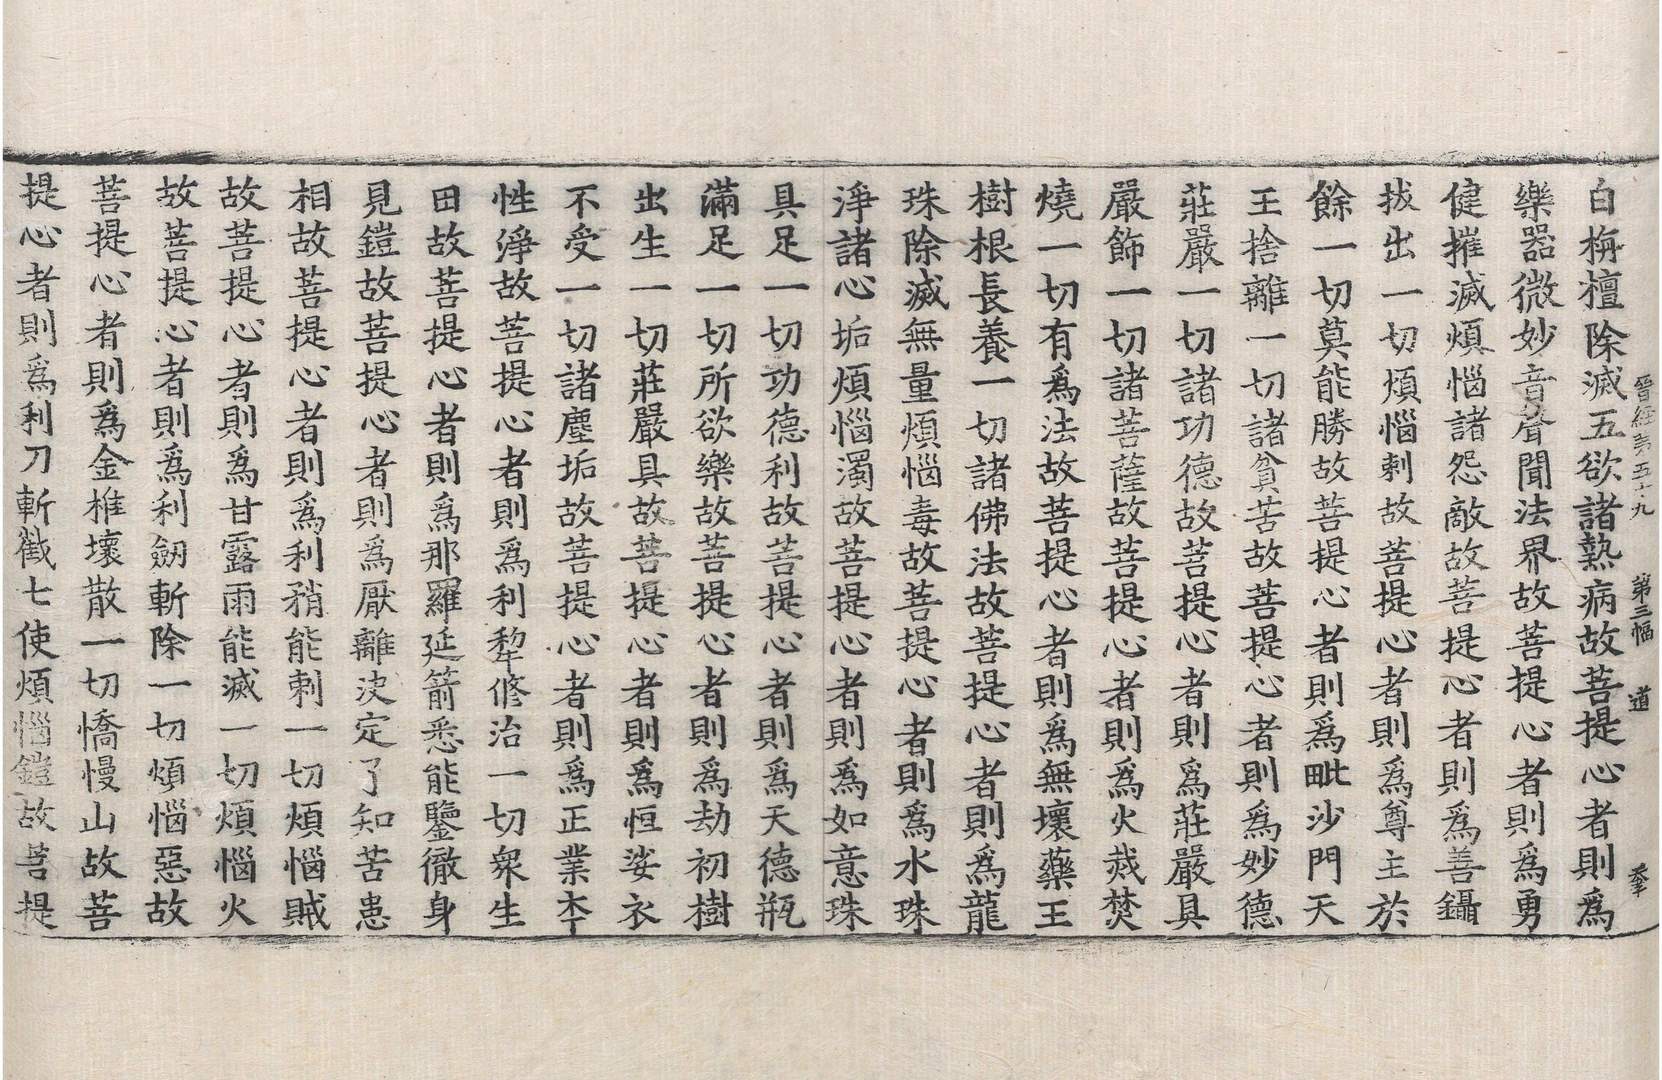 晉經第五十九 第三幅 道
白栴檀除滅五欲諸熱病故菩提心者則爲
樂器微妙音聲聞法界故菩提心者則爲勇
健摧滅煩惱諸怨敵故菩提心者則爲善鑷
拔出一切煩惱刺故菩提心者則爲尊主於
餘一切莫能勝故菩提心者則爲毗沙門天
王捨離一切諸貧苦故菩提心者則爲妙德
莊嚴一切諸功德故菩提心者則爲莊嚴具
嚴飾一切諸菩薩故菩提心者則爲火烖焚
燒一切有爲法故菩提心者則爲無壞藥王
樹根長養一切諸佛法故菩提心者則爲龍
珠除滅無量煩惱毒故菩提心者則爲水珠
淨諸心垢煩惱濁故菩提心者則爲如意珠
具足一切功德利故菩提心者則爲天德瓶
滿足一切所欲樂故菩提心者則爲劫初樹
出生一切莊嚴具故菩提心者則爲恒娑衣
不受一切諸塵垢故菩提心者則爲正業本
性淨故菩提心者則爲利犂修治一切衆生
田故菩提心者則爲那羅延箭悉能鑒徹身
見鎧故菩提心者則爲厭離決定了知苦患
相故菩提心者則爲利矟能刺一切煩惱賊
故菩提心者則爲甘露雨能滅一切煩惱火
故菩提心者則爲利劒斬除一切煩惱惡故
菩提心者則爲金椎壞散一切憍慢山故菩
提心者則爲利刀斬截七使煩惱鎧故菩提